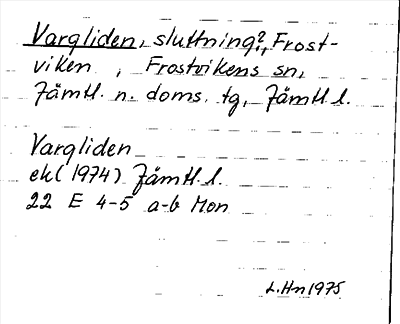 Vargliden, sluttning?, Frost-
viken, Frostvikens sn,
Jämtl. n. doms. tg, Jämtl. l.
Vargliden
ek (1974) Jämtl. l.
22 E 4-5 a-b Mon
L.Hn 1975